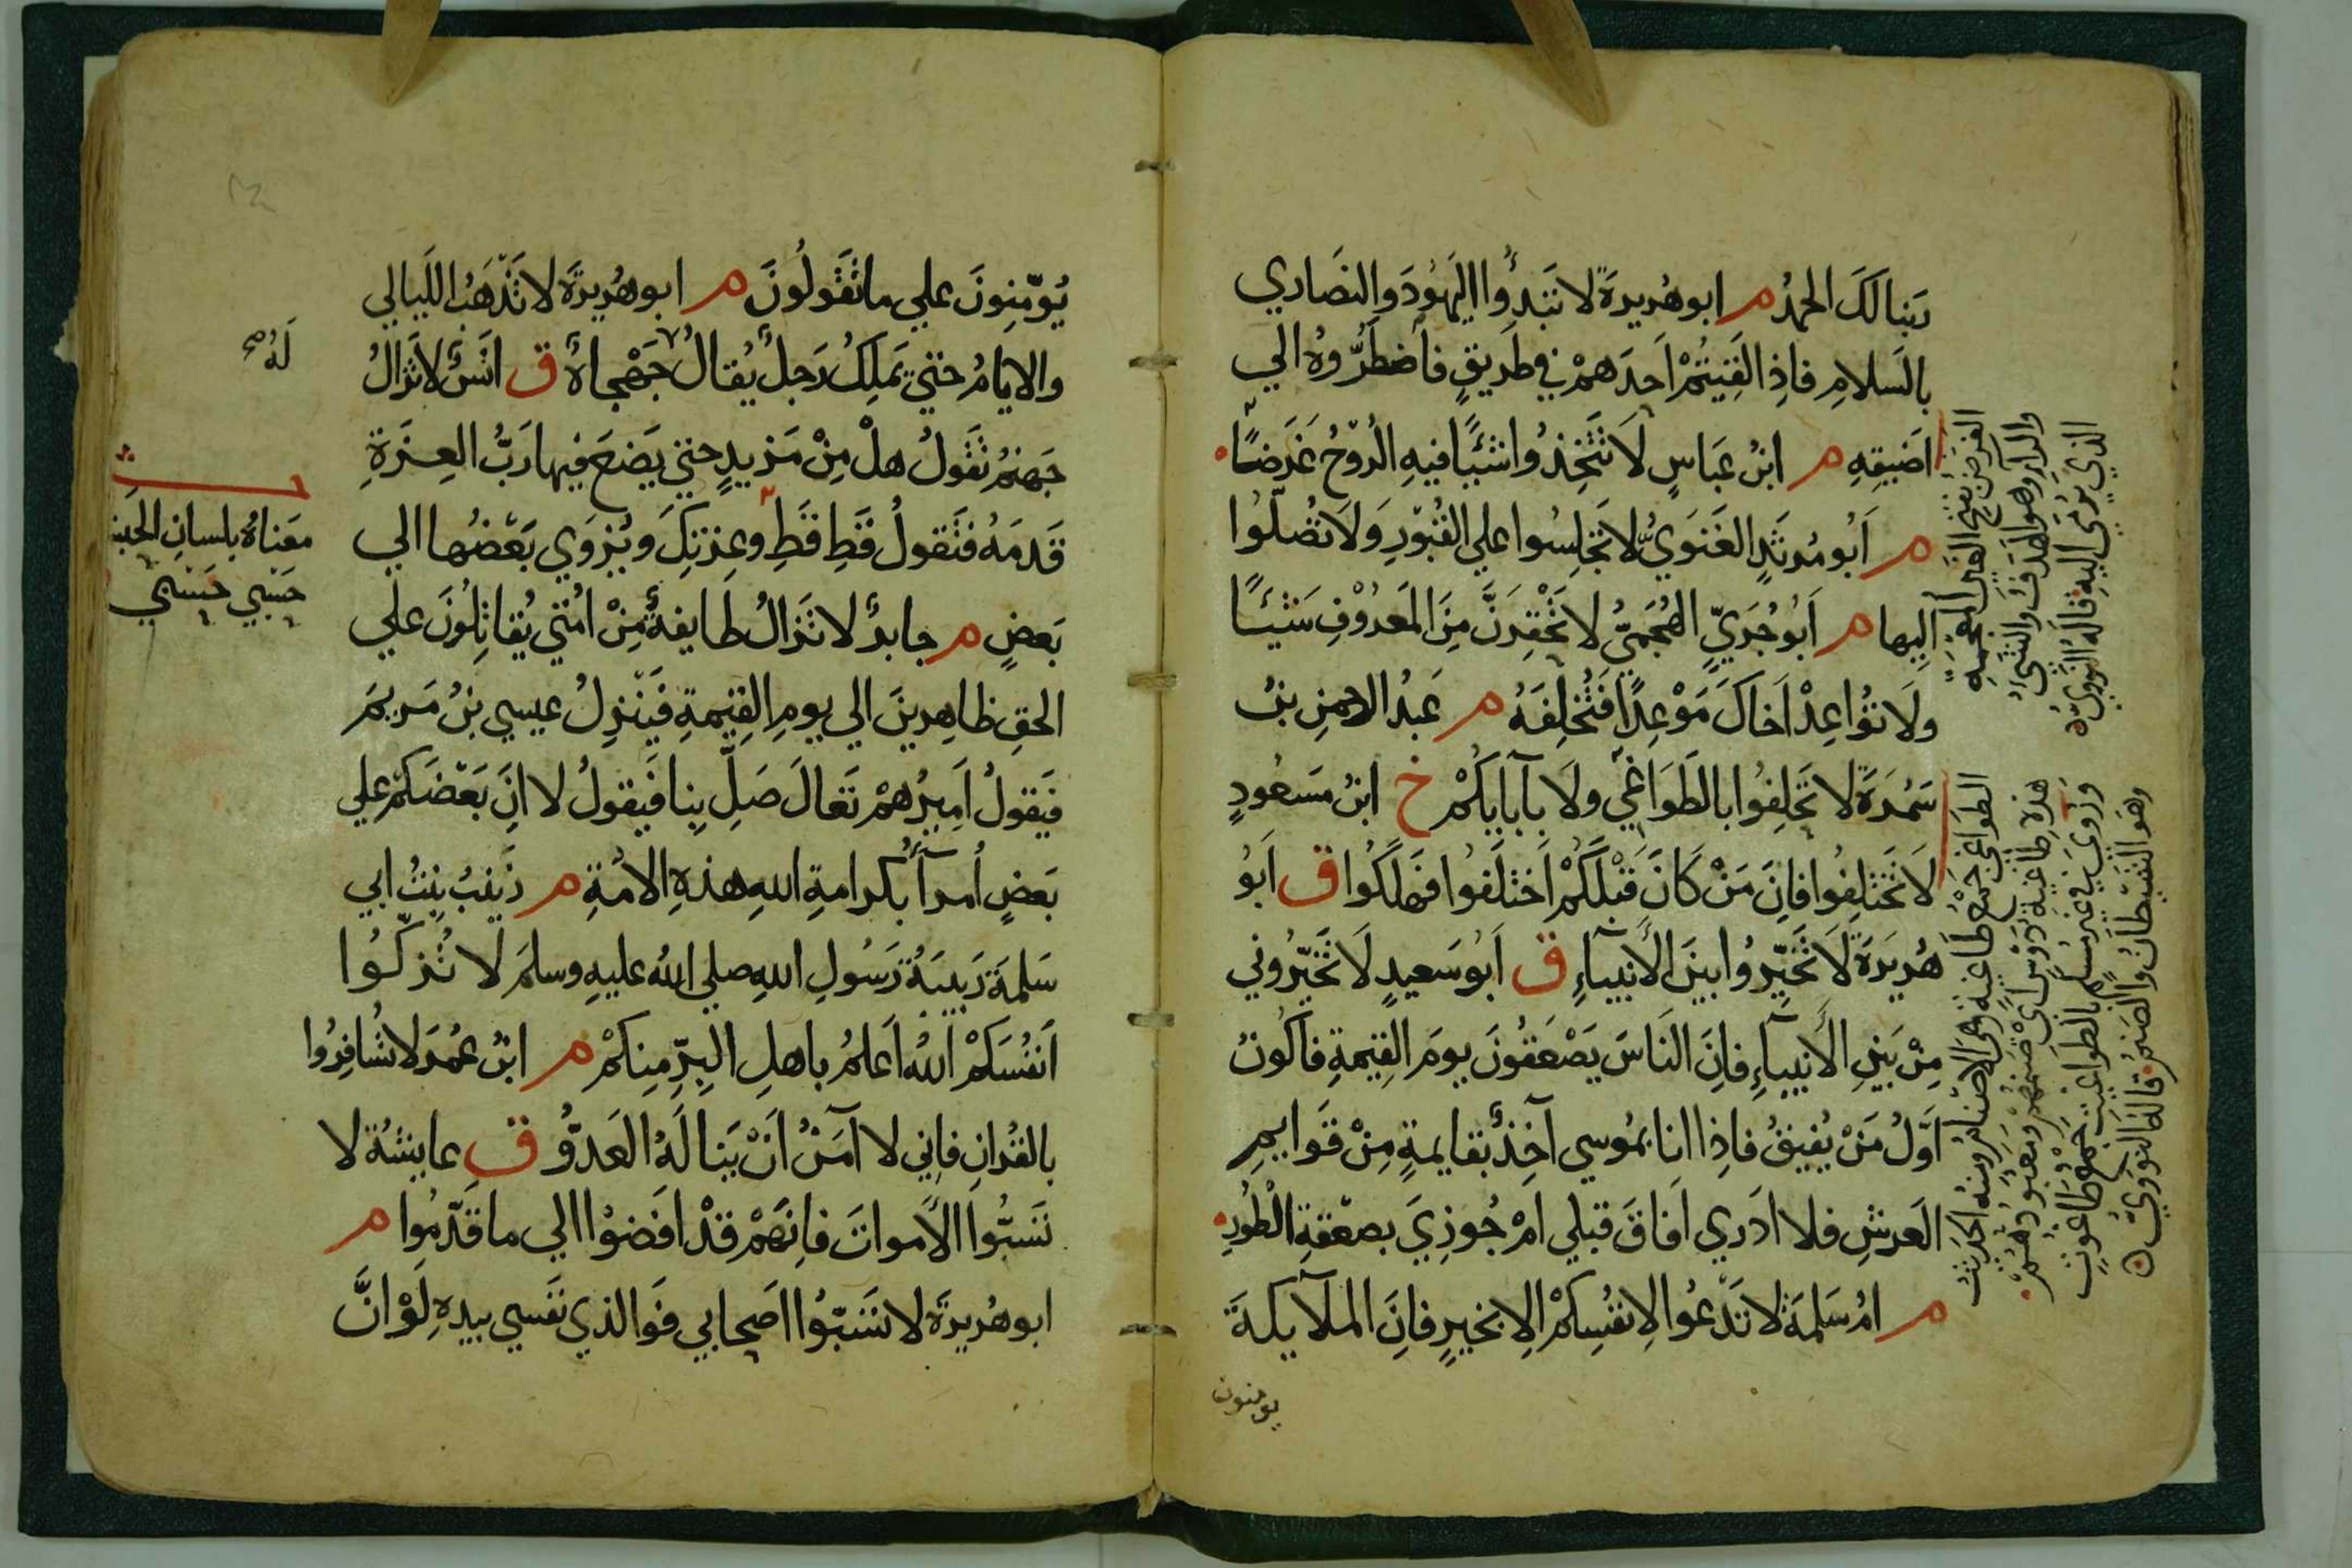 ربنا لك الحمد م ابو هُريرةَ لا تَبدؤا اليهودَ والنصاري
بالسلامِ فاذا لقيتُمْ اَحدَهمْ في طريقٍ فاضطرُّوهُ الي
اضيقِهِ م ابنُ عباسٍ لا تَتَّخِذُوا شيًا فيهِ الرّوحُ غَرَضًا
م اَبُو مرثَدٍ الغَنَوِيُّ لا تَجلِسُوا علي القبُورِ ولا تُصلّوا
اِليها م اَبُو جُرَيٍّ الهُجَميُّ لا تحْقِرَنَّ مِنَ المعرُوْفِ شيئًا
ولا تُواعِدْ اَخاكَ مَوْعِدًا فَتُخلِفَهُ م عَبدُ الرحمنِ بنُ
سَمُرةَ لا تَحلِفُوا بالطَواغي ولا بآبايكُمْ خ ابنُ مسعُودٍ
لا تَختلِفُوا فاِنَ مَنْ كَانَ قَبْلَكُمْ اَختلَفُوا فهلَكُوا ق اَبُو
هُريرَةَ لا تُخيّرُوا بينَ الانبيآءِ ق اَبُو سَعيدٍ لا تُخيّرُوني
مِنْ بينِ الانبيآءِ فاِنَ الناسَ يَصْعَقُونَ يومَ القيمةِ فاَكُونُ
اَوّلَ مَنْ يُفيقُ فاِذا انا بمُوسي آخِذٌ بقايمةٍ مِنْ قَوايمِ
العَرشِ فلا ادري اَفاقَ قبلي امْ جُوزِيَ بصَعْقةِ الطُورِ
م امُ سَلمَةَ لا تَدْعُوا لاِنفُسِكمْ الا بخيرٍ فاِنَ الملآيكةَ
يومنون
الغرض بفتح الغين المعجمة
والرآء وهو الهدف والشئُ
الذي يُرمَى اليهِ قاله النّوويّ
الطواغي جمع طاغية وهي الاصنام ومنه الحديث
هذهِ طاغية دَوْس اي صنمهم ومعبودهُمْ
ورُوي في غير مُسلم بالطواغيت جمع طاغوتٍ
وهو الشيطان والصنم قاله النوويّ
يُؤمِنونَ علي ما تقُولُونَ م ابو هُريرةَ لا تَذْهَبُ الليالي
والايامُ حتي يَملِكَ رَجلٌ يُقالُ جَهْجاهُ ق انَسٌ لا تَزالُ
جَهنمُ تَقُولُ هلْ مِنْ مَزيدٍ حتي يَضعَ فيها رَبُّ العِزةِ
قَدمَهُ فتقولُ قَطِ قَطِ وعِزتِكَ ويُزوَي بَعْضُها الي
بَعضٍ م جابرٌ لا تَزالُ طايفةٌ مِنْ امُتي يُقاتِلُونَ علي
الحقِ ظاهِرينَ الي يومِ القيمةِ فَينزِلُ عيسي بنُ مَريمَ
فَيقولُ اَميرُهمْ تَعالَ صَلِّ بِنا فَيقولُ لا اِنَ بَعْضَكمْ علي
بَعضٍ اُمرآءُ بكرامةِ اللهِ هذهِ الامُةِ م زَينبُ بِنتُ ابي
سَلمَةَ رَبيبَةُ رَسُولِ اللهِ صلي الله عليهِ وسلمَ لا تُزكّوُا
اَنفُسَكمْ اللهُ اَعلمُ باهلِ البِرِّ مِنكمْ م ابنُ عُمرَ لا تُسافِرُوا
بالقُرانِ فاِني لا آمَنُ اَنْ يَنالَهُ العَدوُّ ق عايشةُ لا
تَسُبّوا الاَمواتَ فاِنهمْ قدْ افضَوْا الي ما قَدّموا م
ابو هُريرةَ لا تَسبّوُا اصحابي فَوَالذي نَفسي بيدِهِ لَوْ انَّ
لَهُ صح
معَناهُ بلسان
حَسْبي حَسْبي